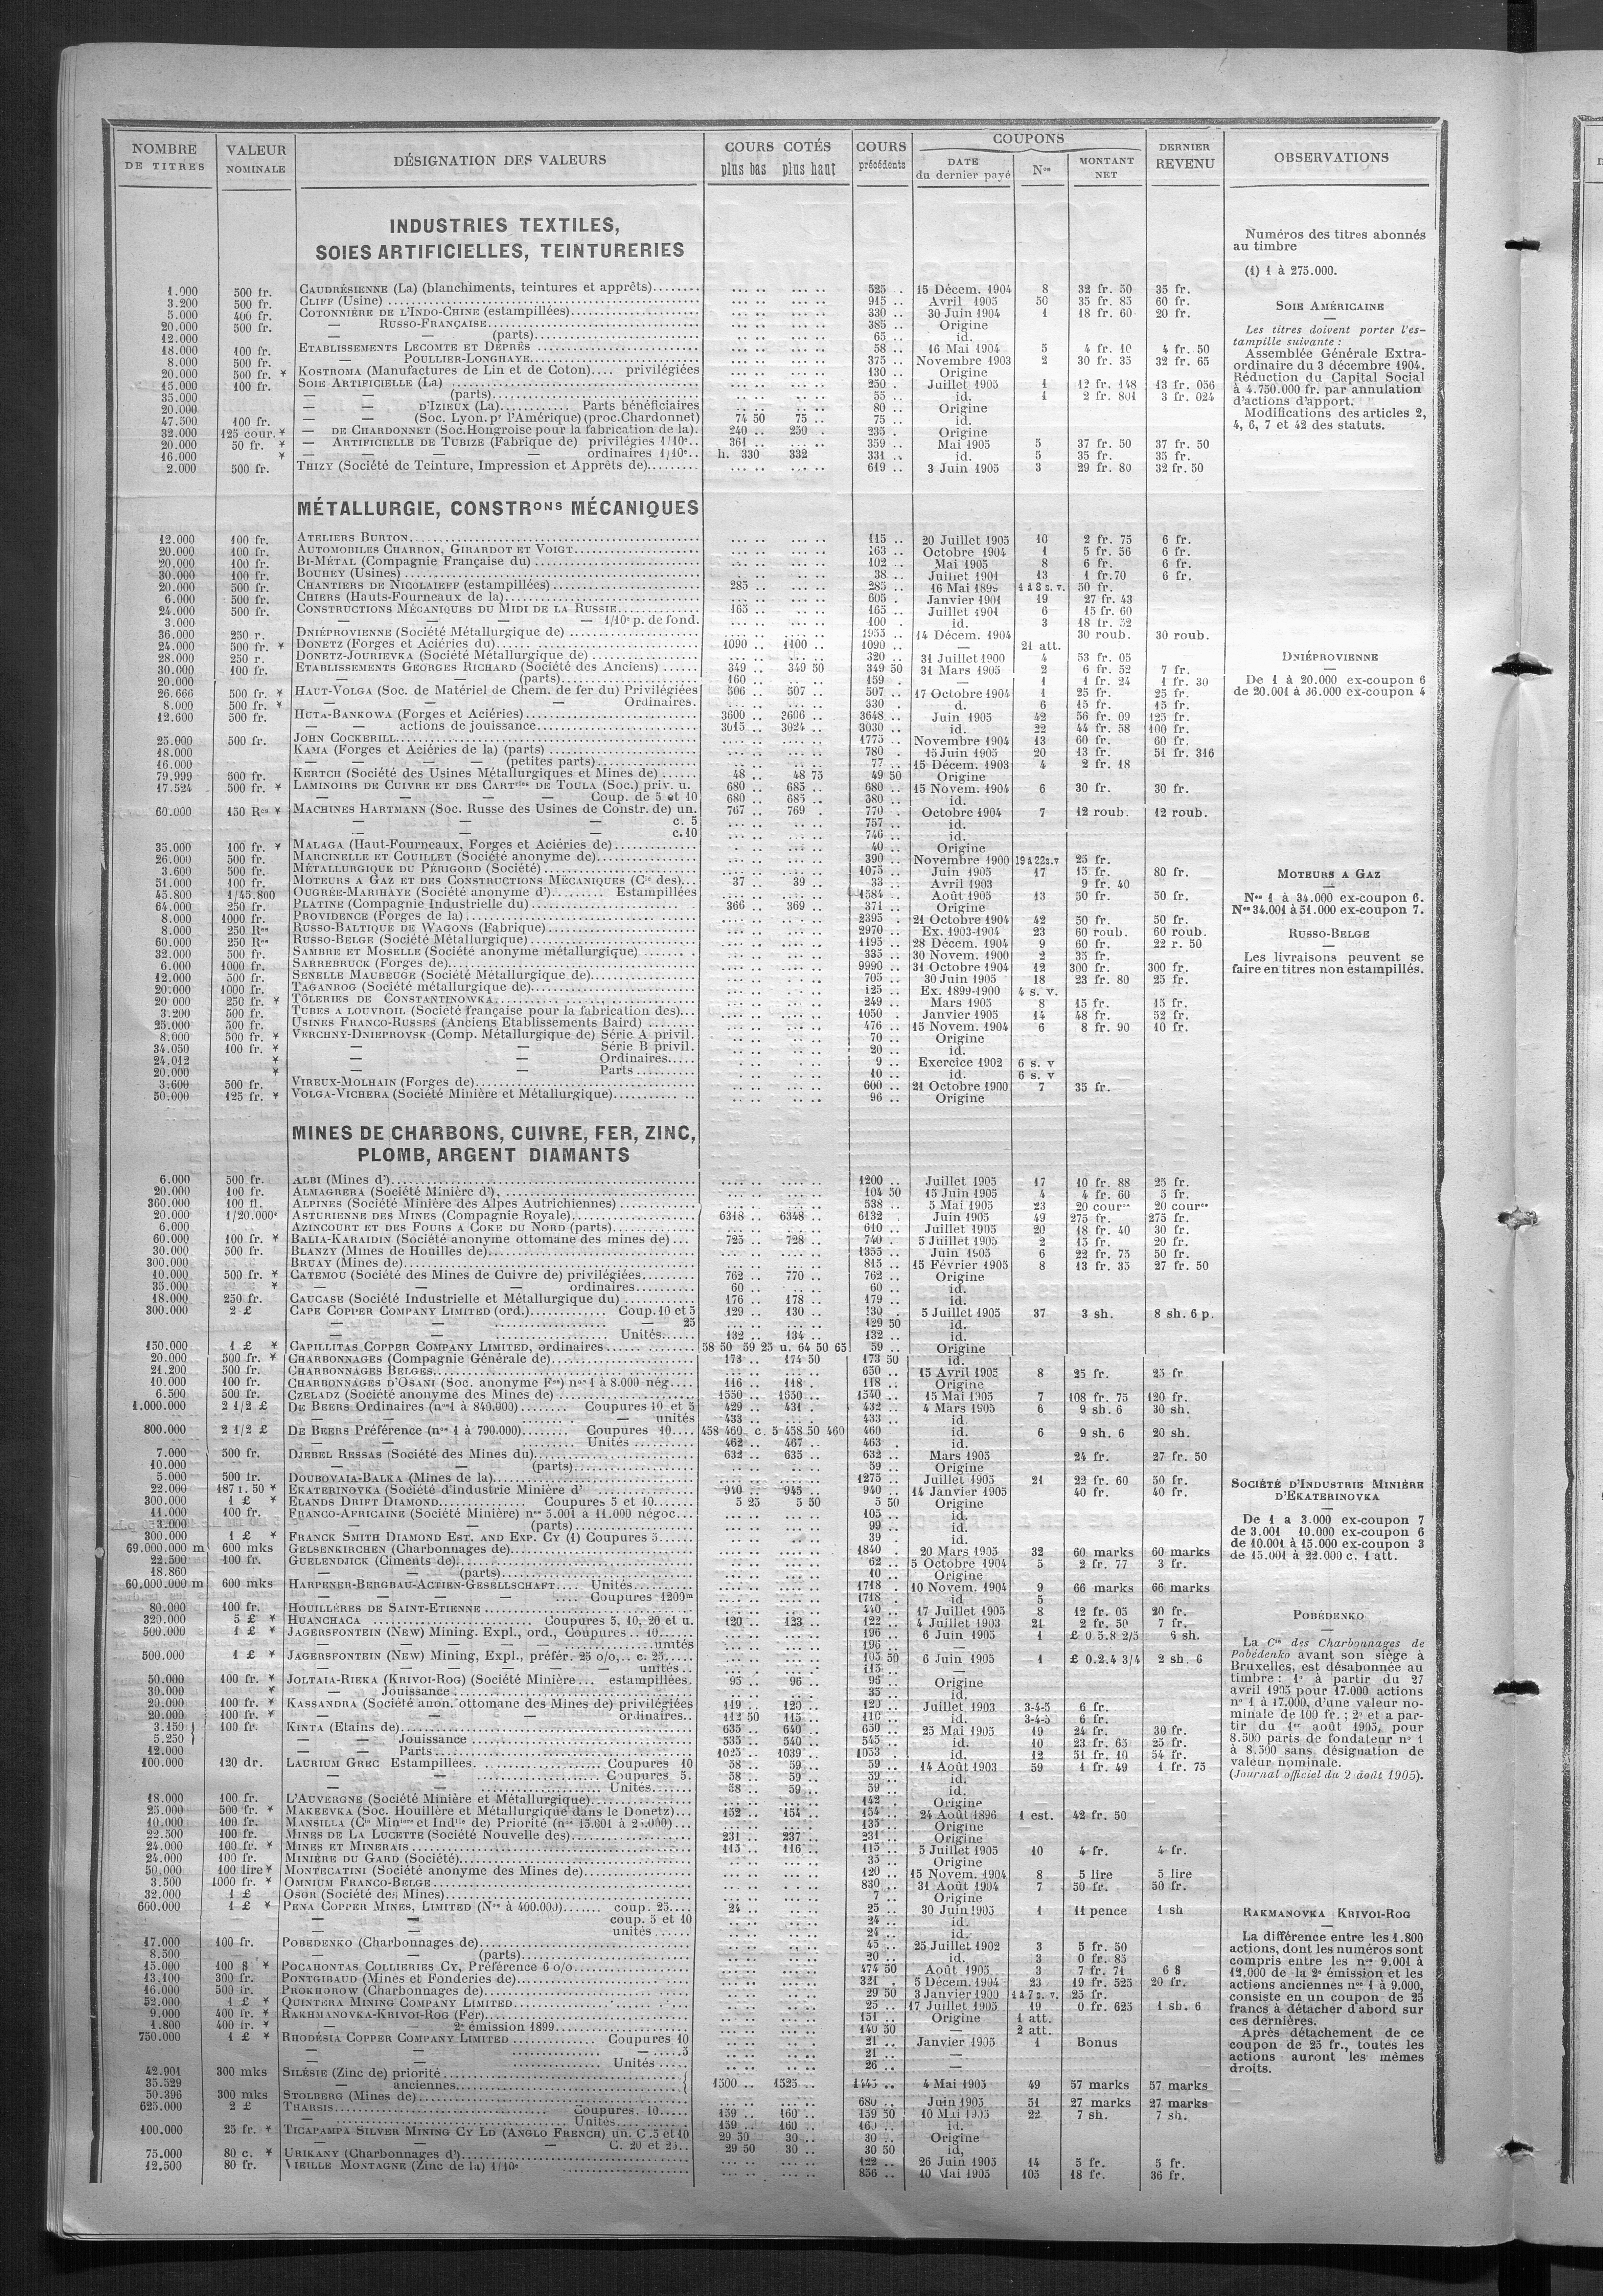 NOMBRE DE TITRES | VALEUR NOMINALE | DÉSIGNATION DES VALEURS | COURS COTÉS plus bas plus haut | COURS précédents | COUPONS DATE du dernier payé | Nos | MONTANT NET | DERNIER REVENU | OBSERVATIONS
INDUSTRIES TEXTILES,
SOIES ARTIFICIELLES, TEINTURERIES
1.000 500 fr. CAUDRÉSIENNE (La) (blanchiments, teintures et apprêts) 525 .. 15 Décem. 1904 8 32 fr. 50 35 fr.
3.200 500 fr. CLIFF (Usine) 915 .. Avril 1905 50 35 fr. 85 60 fr.
5.000 400 fr. COTONNIÈRE DE L'INDO-CHINE (estampillées) 330 .. 30 Juin 1904 1 18 fr. 60 20 fr.
20.000 500 fr. — RUSSO-FRANÇAISE 385 .. Origine
12.000 — — (parts) 65 .. id.
18.000 100 fr. ETABLISSEMENTS LECOMTE ET DEPRÊS 58 .. 16 Mai 1904 5 4 fr. 10 4 fr. 50
8.000 500 fr. — POULLIER-LONGHAYE 375 .. Novembre 1903 2 30 fr. 35 32 fr. 65
20.000 500 fr. * KOSTROMA (Manufactures de Lin et de Coton).... privilégiées 130 .. Origine
15.000 100 fr. SOIE ARTIFICIELLE (La) 250 . Juillet 1905 1 12 fr. 148 13 fr. 056
35.000 — — (parts) 55 .. id. 1 2 fr. 801 3 fr. 024
20.000 — — D'IZIEUX (La) Parts bénéficiaires 80 .. Origine
47.500 100 fr. — — (Soc. Lyon. pr l'Amérique) (proc. Chardonnet) 74 50 75 .. 75 .. id.
32.000 125 cour. * — DE CHARDONNET (Soc. Hongroise pour la fabrication de la). 240 .. 250 . 235 . Origine
20.000 50 fr. * — ARTIFICIELLE DE TUBIZE (Fabrique de) privilégies 1/10e.. 361 .. 359 .. Mai 1905 5 37 fr. 50 37 fr. 50
16.000 * — — — — ordinaires 1/10e.. h. 330 332 331 .. id. 5 35 fr. 35 fr.
2.000 500 fr. THIZY (Société de Teinture, Impression et Apprêts de) 619 .. 3 Juin 1905 3 29 fr. 80 32 fr. 50
MÉTALLURGIE, CONSTRons MÉCANIQUES
12.000 100 fr. ATELIERS BURTON 115 .. 20 Juillet 1905 10 2 fr. 75 6 fr.
20.000 100 fr. AUTOMOBILES CHARRON, GIRARDOT ET VOIGT 163 .. Octobre 1904 1 5 fr. 56 6 fr.
20.000 100 fr. BI-MÉTAL (Compagnie Française du) 102 .. Mai 1905 8 6 fr. 6 fr.
30.000 100 fr. BOUHEY (Usines) 38 .. Juillet 1901 13 1 fr.70 6 fr.
20.000 500 fr. CHANTIERS DE NICOLAIEFF (estampillées) 285 .. 285 .. 16 Mai 1899 4 à 8 s. v. 50 fr.
6.000 500 fr. CHIERS (Hauts-Fourneaux de la) 605 . Janvier 1901 19 27 fr. 43
24.000 500 fr. CONSTRUCTIONS MÉCANIQUES DU MIDI DE LA RUSSIE 165 .. 165 .. Juillet 1901 6 15 fr. 60
3.000 — — — — 1/10e p. de fond. 100 . id. 3 18 fr. 52
36.000 250 r. DNIÉPROVIENNE (Société Métallurgique de) 1955 .. 14 Décem. 1904 30 roub. 30 roub.
24.000 500 fr. * DONETZ (Forges et Aciéries du) 1090 .. 1100 .. 1090 .. — 21 att.
28.000 250 r. DONETZ-JOURIEVKA (Société Métallurgique de) 320 .. 31 Juillet 1900 4 53 fr. 05
30.000 100 fr. ETABLISSEMENTS GEORGES RICHARD (Société des Anciens) 349 .. 349 50 349 50 31 Mars 1905 2 6 fr. 52 7 fr.
20.000 — (parts) 160 .. 159 . — 1 1 fr. 24 1 fr. 30
26.666 500 fr. * HAUT-VOLGA (Soc. de Matériel de Chem. de fer du) Privilégiées 506 .. 507 .. 507 .. 17 Octobre 1904 1 25 fr. 25 fr.
8.000 500 fr. * — — — Ordinaires. 330 . d. 6 15 fr. 15 fr.
12.600 500 fr. HUTA-BANKOWA (Forges et Aciéries) 3600 .. 3606 .. 3648 .. Juin 1905 42 56 fr. 09 125 fr.
— — actions de jouissance 3015 .. 3024 .. 3030 .. id. 22 44 fr. 58 100 fr.
25.000 500 fr. JOHN COCKERILL 1775 .. Novembre 1904 13 60 fr. 60 fr.
18.000 KAMA (Forges et Aciéries de la) (parts) 780 . 15 Juin 1905 20 13 fr. 51 fr. 316
16.000 — — — — (petites parts) 77 .. 15 Décem. 1903 4 2 fr. 18
79.999 500 fr. KERTCH (Société des Usines Métallurgiques et Mines de) 48 .. 48 75 49 50 Origine
17.524 500 fr. * LAMINOIRS DE CUIVRE ET DES CARTries DE TOULA (Soc.) priv. u. 680 .. 685 .. 680 .. 15 Novem. 1904 6 30 fr. 30 fr.
— — — — Coup. de 5 et 10 680 .. 685 .. 680 .. id.
60.000 150 Res * MACHINES HARTMANN (Soc. Russe des Usines de Constr. de) un. 767 .. 769 . 770 . Octobre 1904 7 12 roub. 12 roub.
— — — c. 5 757 .. id.
— — — c. 10 746 .. id.
35.000 100 fr. * MALAGA (Haut-Fourneaux, Forges et Aciéries de) 40 .. Origine
26.000 500 fr. MARCINELLE ET COUILLET (Société anonyme de) 390 .. Novembre 1900 19 à 22 s.v 25 fr.
3.600 500 fr. MÉTALLURGIQUE DU PÉRIGORD (Société) 1075 .. Juin 1905 17 15 fr. 80 fr.
51.000 100 fr. MOTEURS A GAZ ET DES CONSTRUCTIONS MÉCANIQUES (Cie des) 37 .. 39 .. 33 .. Avril 1903 9 fr. 40
45.800 1/45.800 OUGRÉE-MARIHAYE (Société anonyme d') Estampillées 1584 .. Août 1905 13 50 fr. 50 fr.
64.000 250 fr. PLATINE (Compagnie Industrielle du) 366 .. 369 .. 371 .. Origine
8.000 1000 fr. PROVIDENCE (Forges de la) 2395 .. 21 Octobre 1904 42 50 fr. 50 fr.
8.000 250 Res RUSSO-BALTIQUE DE WAGONS (Fabrique) 2970 .. Ex. 1903-1904 23 60 roub. 60 roub.
60.000 250 Res RUSSO-BELGE (Société Métallurgique) 1195 .. 28 Décem. 1904 9 60 fr. 22 r. 50
32.000 500 fr. SAMBRE ET MOSELLE (Société anonyme métallurgique) 335 .. 30 Novem. 1900 2 35 fr.
6.000 1000 fr. SARREBRUCK (Forges de) 9990 .. 31 Octobre 1904 12 300 fr. 300 fr.
12.000 500 fr. SENELLE MAUBEUGE (Société Métallurgique de) 705 .. 30 Juin 1905 18 23 fr. 80 25 fr.
20.000 1000 fr. TAGANROG (Société métallurgique de) 125 .. Ex. 1899-1900 4 s. v.
20 000 250 fr. * TÔLERIES DE CONSTANTINOWKA 249 .. Mars 1905 8 15 fr. 15 fr.
3.200 500 fr. TUBES A LOUVROIL (Société française pour la fabrication des) 1050 . Janvier 1905 14 48 fr. 52 fr.
25.000 500 fr. USINES FRANCO-RUSSES (Anciens Etablissements Baird) 476 .. 15 Novem. 1904 6 8 fr. 90 10 fr.
8.000 500 fr. * VERCHNY-DNIEPROVSK (Comp. Métallurgique de) Série A privil. 70 .. Origine
34.050 100 fr. * — — Série B privil. 20 .. id.
24.012 * — — Ordinaires 9 .. Exercice 1902 6 s. v
20.000 * — — Parts 10 .. id. 6 s. v
3.600 500 fr. VIREUX-MOLHAIN (Forges de) 600 .. 21 Octobre 1900 7 35 fr.
50.000 125 fr. * VOLGA-VICHERA (Société Minière et Métallurgique) 96 .. Origine
MINES DE CHARBONS, CUIVRE, FER, ZINC,
PLOMB, ARGENT DIAMANTS
6.000 500 fr. ALBI (Mines d') 1200 .. Juillet 1905 17 10 fr. 88 25 fr.
20.000 100 fr. ALMAGRERA (Société Minière d') 104 50 15 Juin 1905 4 4 fr. 60 5 fr.
360.000 100 fl. ALPINES (Société Minière des Alpes Autrichiennes) 538 .. 5 Mai 1905 23 20 cours 20 cours
20.000 1/20.000e ASTURIENNE DES MINES (Compagnie Royale) 6318 .. 6348 .. 6132 . Juin 1905 49 275 fr. 275 fr.
6.000 AZINCOURT ET DES FOURS A COKE DU NORD (parts) 610 .. Juillet 1905 20 18 fr. 40 30 fr.
60.000 100 fr. * BALIA-KARAIDIN (Société anonyme ottomane des mines de) 725 .. 728 .. 740 . 5 Juillet 1905 2 15 fr. 20 fr.
30.000 500 fr. BLANZY (Mines de Houilles de) 1355 .. Juin 1905 6 22 fr. 75 50 fr.
300.000 BRUAY (Mines de) 815 .. 15 Février 1905 8 13 fr. 35 27 fr. 50
10.000 500 fr. * CATEMOU (Société des Mines de Cuivre de) privilégiées 762 .. 770 .. 762 .. Origine
35.000 — * — — ordinaires 60 .. 60 .. id.
18.000 250 fr. CAUCASE (Société Industrielle et Métallurgique du) 176 .. 178 .. 179 .. id.
300.000 2 £ CAPE COPPER COMPANY LIMITED (ord.) Coup. 10 et 5 129 .. 130 .. 130 .. 5 Juillet 1905 37 3 sh. 8 sh. 6 p.
— — — 25 129 50 id.
— — Unités 132 .. 134 .. 132 .. id.
150.000 1 £ * CAPILLITAS COPPER COMPANY LIMITED, ordinaires 58 50 59 25 u. 64 50 65 59 .. Origine
20.000 500 fr. * CHARBONNAGES (Compagnie Générale de) 173 .. 174 50 173 50 id.
21.200 500 fr. CHARBONNAGES BELGES 650 .. 15 Avril 1905 8 25 fr. 25 fr
10.000 100 fr. CHARBONNAGES D'OSANI (Soc. anonyme Fse) nos 1 à 8.000 nég. 116 .. 118 .. 118 .. Origine
6.500 500 fr. CZELADZ (Société anonyme des Mines de) 1550 .. 1550 .. 1540 .. 15 Mai 1905 7 108 fr. 75 120 fr.
1.000.000 2 1/2 £ DE BEERS Ordinaires (nos 1 à 840.000) Coupures 10 et 5 429 .. 431 . 432 .. 4 Mars 1905 6 9 sh. 6 30 sh.
— — — unités 433 .. 433 .. id.
800.000 2 1/2 £ DE BEERS Préférence (nos 1 à 790.000) Coupures 10 458 460 c. 5 458 50 460 460 id. 6 9 sh. 6 20 sh.
— — Unités 462 .. 467 .. 463 . id.
7.000 500 fr. DJEBEL RESSAS (Société des Mines du) 632 .. 635 .. 632 .. Mars 1905 24 fr. 27 fr. 50
10.000 — — (parts) 59 .. Origine
5.000 500 fr. DOUBOVAIA-BALKA (Mines de la) 1275 .. Juillet 1905 21 22 fr. 60 50 fr.
22.000 187 r. 50 * EKATERINOVKA (Société d'industrie Minière d' 940 .. 945 .. 940 .. 14 Janvier 1905 40 fr. 40 fr.
300.000 1 £ * ELANDS DRIFT DIAMOND Coupures 5 et 10 5 25 5 50 5 50 Origine
11.000 100 fr. FRANCO-AFRICAINE (Société Minière) nos 5.001 à 11.000 négoc. 105 .. id.
3.000 — — (parts) 99 .. id.
300.000 1 £ * FRANCK SMITH DIAMOND EST. AND EXP. CY (1) Coupures 5 39 . id.
69.000.000 m 600 mks GELSENKIRCHEN (Charbonnages de) 1840 . 20 Mars 1905 32 60 marks 60 marks
22.500 100 fr. GUELENDJICK (Ciments de) 62 .. 5 Octobre 1904 5 2 fr. 77 3 fr.
18.860 — — (parts) 10 .. Origine
60.000.000 m 600 mks HARPENER-BERGBAU-ACTIEN-GESELLSCHAFT Unités 1718 . 10 Novem. 1904 9 66 marks 66 marks
— — — — Coupures 1200m 1718 . id 5
80.000 100 fr. HOUILLÈRES DE SAINT-ETIENNE 440 .. 17 Juillet 1905 8 12 fr. 05 20 fr.
320.000 5 £ * HUANCHACA Coupures 5, 10, 20 et u. 120 .. 123 .. 122 .. 4 Juillet 1903 21 2 fr. 50 7 fr.
500.000 1 £ * JAGERSFONTEIN (New) Mining. Expl., ord., Coupures .. 10 196 .. 6 Juin 1905 1 £ 0.5.8 2/5 6 sh.
— — — — — unités 196 .. —
500.000 1 £ * JAGERSFONTEIN (New) Mining, Expl., préfer. 25 o/o,.. c. 25 105 50 6 Juin 1905 1 £ 0.2.4 3/4 2 sh. 6
— — — — — unités 115 .. —
50.000 100 fr. * JOLTAIA-RIEKA (KRIVOI-ROG) (Société Minière... estampillées. 95 .. 96 .. 96 .. Origine
30.000 * — Jouissance 35 .. id.
20.000 100 fr. * KASSANDRA (Société anon. ottomane des Mines de) privilégiées 119 .. 120 .. 120 .. Juillet 1903 3-4-5 6 fr.
20.000 100 fr. * — — — ordinaires 112 50 115 .. 110 .. id. 3-4-5 6 fr.
3.150 } 100 fr. KINTA (Etains de) 635 .. 640 .. 650 .. 25 Mai 1905 19 24 fr. 30 fr.
5.250 } — — Jouissance 535 .. 540 .. 545 .. id. 10 23 fr. 65 25 fr.
12.000 — — Parts 1025 .. 1039 .. 1053 .. id. 12 51 fr. 10 54 fr.
100.000 120 dr. LAURIUM GREC Estampillees Coupures 10 58 .. 59 .. 59 .. 14 Août 1903 59 1 fr. 49 1 fr. 75
— — Coupures 5. 58 .. 59 .. 59 .. id.
— — Unités 58 .. 59 .. 59 .. id.
18.000 100 fr. L'AUVERGNE (Société Minière et Métallurgique) 142 .. Origine
25.000 500 fr. * MAKEEVKA (Soc. Houillère et Métallurgique dans le Donetz) 152 .. 154 .. 154 .. 24 Août 1896 1 est. 42 fr. 50
10.000 100 fr. MANSILLA (Cie Minière et Indlle de) Priorité 135 .. Origine
22.500 100 fr. MINES DE LA LUCETTE (Société Nouvelle des) 231 .. 237 .. 231 .. Origine
24.000 100 fr. * MINES ET MINERAIS 115 .. 116 .. 115 .. 5 Juillet 1905 10 4 fr. 4 fr.
24.000 100 fr. MINIÈRE DU GARD (Société) 35 .. Origine
50.000 100 lire * MONTECATINI (Société anonyme des Mines de) 120 .. 15 Novem. 1904 8 5 lire 5 lire
3.500 1000 fr. * OMNIUM FRANCO-BELGE 830 .. 31 Août 1904 7 50 fr. 50 fr.
32.000 1 £ OSOR (Société des Mines) 7 .. Origine
600.000 1 £ * PENA COPPER MINES, LIMITED (Nos à 400.000) coup. 25 24 .. 25 .. 30 Juin 1905 1 11 pence 1 sh
— — coup. 5 et 10 24 .. id.
— — unités 24 .. id.
17.000 100 fr. POBEDENKO (Charbonnages de) 45 .. 25 Juillet 1902 3 5 fr. 50
8.500 — — (parts) 20 .. id. 3 0 fr. 85
15.000 100 $ * POCAHONTAS COLLIERIES CY, Préférence 6 o/o 474 50 Août 1905 3 7 fr. 71 6 $
13.100 300 fr. PONTGIBAUD (Mines et Fonderies de) 321 . 5 Décem. 1904 23 19 fr. 525 20 fr.
16.000 500 fr. PROKHOROW (Charbonnages de) 29 50 3 Janvier 1900 4 à 7 s. v. 25 fr.
52.000 1 £ * QUINTERA MINING COMPANY LIMITED 25 .. 17 Juillet 1905 19 0 fr. 625 1 sh. 6
9.000 400 fr. * RAKHMANOVKA-KRIVOI-ROG (Fer) 151 .. Origine 1 att.
1.800 400 fr. * — 2e émission 1899 140 50 — 2 att.
750.000 1 £ * RHODÉSIA COPPER COMPANY LIMITED Coupures 10 21 .. Janvier 1905 1 Bonus
— — — 5 21 .. —
— — Unités 26 .. —
42.901 300 mks SILÉSIE (Zinc de) priorité
35.529 — anciennes 1500 .. 1525 .. 1445 .. 4 Mai 1905 49 57 marks 57 marks
50.396 300 mks STOLBERG (Mines de) 680 .. Juin 1905 51 27 marks 27 marks
625.000 2 £ THARSIS Coupures. 10 159 .. 160 .. 159 50 10 Mai 1905 22 7 sh. 7 sh.
— Unités 159 .. 160 .. 160 .. id.
100.000 25 fr. * TICAPAMPA SILVER MINING CY LD (ANGLO FRENCH) un. C. 5 et 10 29 50 30 .. 30 .. Origine
— — — C. 20 et 25.. 29 50 30 .. 30 50 id,
75.000 80 c. * URIKANY (Charbonnages d') 122 .. 26 Juin 1905 14 5 fr. 5 fr.
12.500 80 fr. VIEILLE MONTAGNE (Zinc de la) 1/10e 856 .. 10 Mai 1905 105 18 fr. 36 fr.
Numéros des titres abonnés
au timbre
(1) 1 à 275.000.
SOIE AMÉRICAINE
Les titres doivent porter l'es-
tampille suivante :
Assemblée Générale Extra-
ordinaire du 3 décembre 1904.
Réduction du Capital Social
à 4.750.000 fr. par annulation
d'actions d'apport.
Modifications des articles 2,
4, 6, 7 et 42 des statuts.
DNIÉPROVIENNE
De 1 à 20.000 ex-coupon 6
de 20.001 à 36.000 ex-coupon 4
MOTEURS A GAZ
Nos 1 à 34.000 ex-coupon 6.
Nos 34.001 à 51.000 ex-coupon 7.
RUSSO-BELGE
Les livraisons peuvent se
faire en titres non estampillés.
SOCIÉTÉ D'INDUSTRIE MINIÈRE
D'EKATERINOVKA
De 1 a 3.000 ex-coupon 7
de 3.001 10.000 ex-coupon 6
de 10.001 à 15.000 ex-coupon 3
de 15.001 à 22.000 c. 1 att.
POBÉDENKO
La Cie des Charbonnages de
Pobédenko avant son siège à
Bruxelles, est désabonnée au
timbre : 1o à partir du 27
avril 1905 pour 17.000 actions
no 1 à 17.000, d'une valeur no-
minale de 100 fr. ; 2o et a par-
tir du 1er août 1905, pour
8.500 parts de fondateur no 1
à 8.500 sans désignation de
valeur nominale.
(Journal officiel du 2 août 1905).
RAKMANOVKA KRIVOI-ROG
La différence entre les 1.800
actions, dont les numéros sont
compris entre les nos 9.001 à
12.000 de la 2e émission et les
actions anciennes nos 1 à 9.000,
consiste en un coupon de 25
francs à détacher d'abord sur
ces dernières.
Après détachement de ce
coupon de 25 fr., toutes les
actions auront les mêmes
droits.